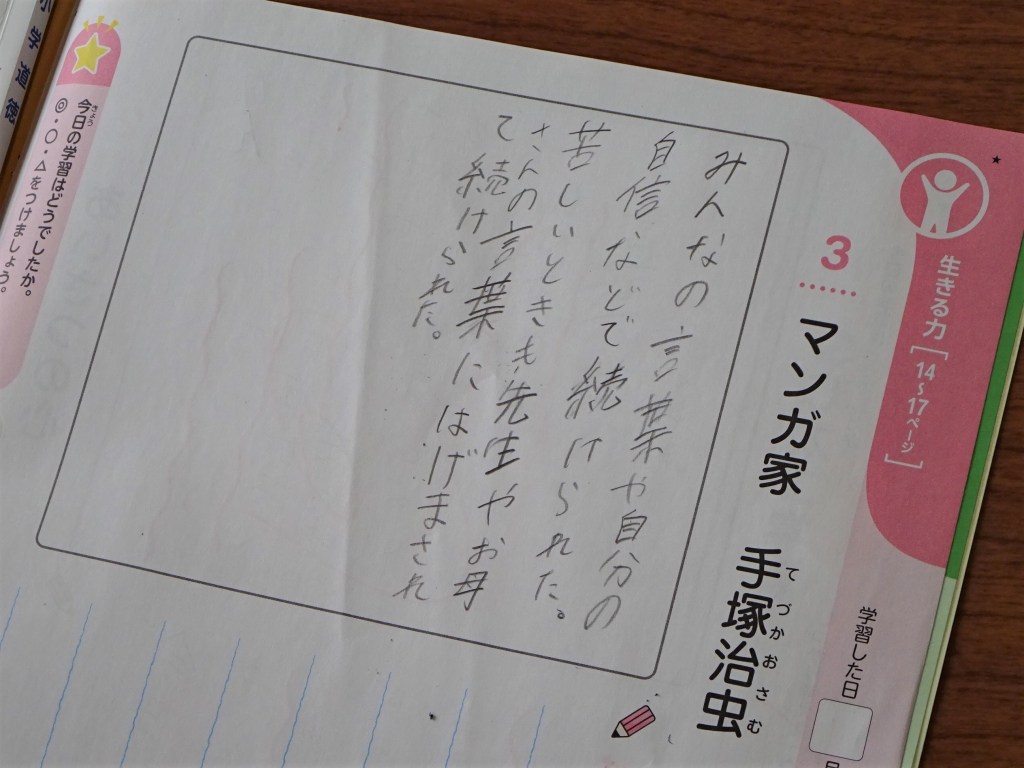 生きる力[14〜17ページ]
学習した日
3
マンガ家 手塚治虫
てづかおさむ
みんなの言葉や自分の
自信などで続けられた。
苦しいときも先生やお母
さんの言葉にはげまされ
て続けられた。
きょう
今日の学習はどうでしたか。
◎・○・△をつけましょう。
小学道徳